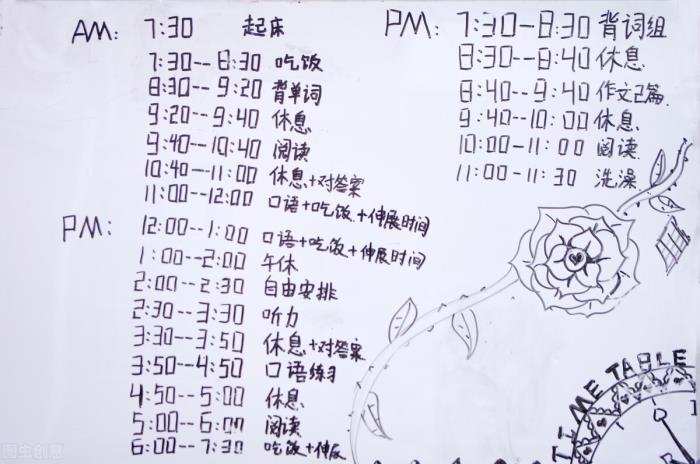 AM: 7:30 起床
7:30--8:30 吃饭
8:30--9:20 背单词
9:20--9:40 休息
9:40--10:40 阅读
10:40--11:00 休息+对答案
11:00--12:00 口语+吃饭+伸展时间
PM: 12:00--1:00 口语+吃饭+伸展时间
1:00--2:00 午休
2:00--2:30 自由安排
2:30--3:30 听力
3:30--3:50 休息+对答案
3:50--4:50 口语练习
4:50--5:00 休息
5:00--6:00 阅读
6:00--7:30 吃饭+伸展
PM: 7:30--8:30 背词组
8:30--8:40 休息
8:40--9:40 作文2篇
9:40--10:00 休息
10:00-11:00 阅读
11:00-11:30 洗澡
TIME TABLE
图虫创意